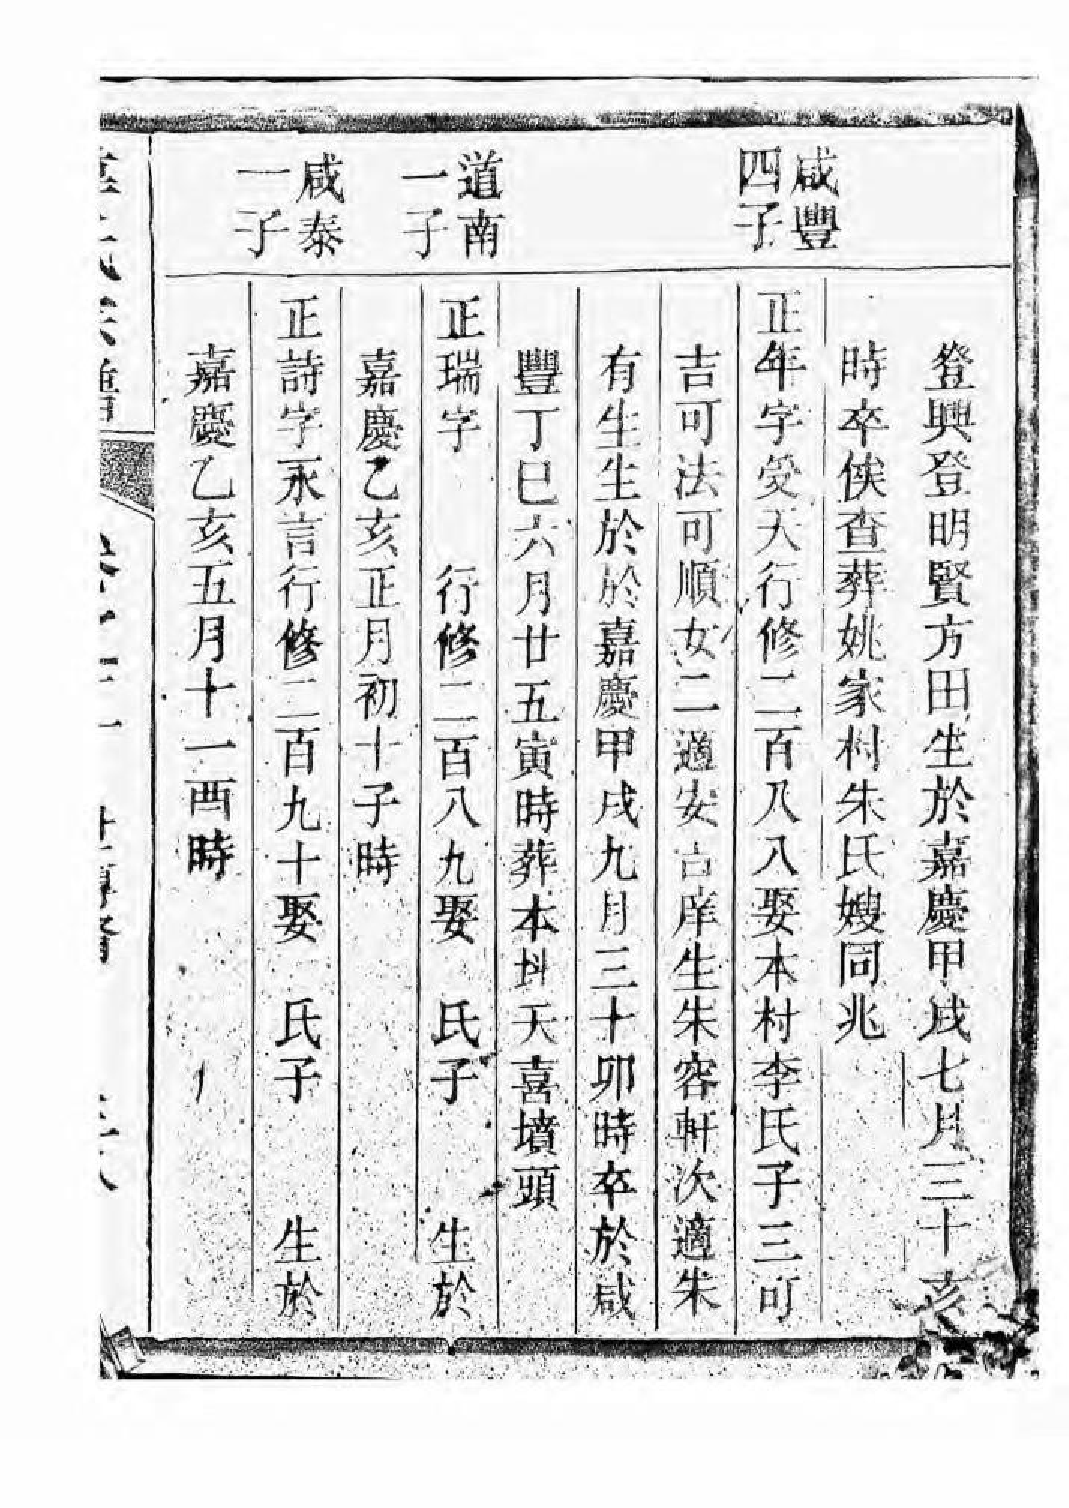 登興登明賢方田生於嘉慶甲戌七月三十亥
時卒俟查葬姚家村朱氏嫂同兆
咸豐
四子
正年字受天行修二百八八娶本村李氏子三可
吉可法可順女二適安吉庠生朱容軒次適朱
有生生於於嘉慶甲戌九月三十卯時卒於咸
豐丁巳六月廿五寅時葬本村天喜墳頭
道南
一子
正瑞字 行修二百八九娶 氏子 生於
嘉慶乙亥正月初十子時
咸泰
一子
正詩字永言行修二百九十娶 氏子 生於
嘉慶乙亥五月十一酉時